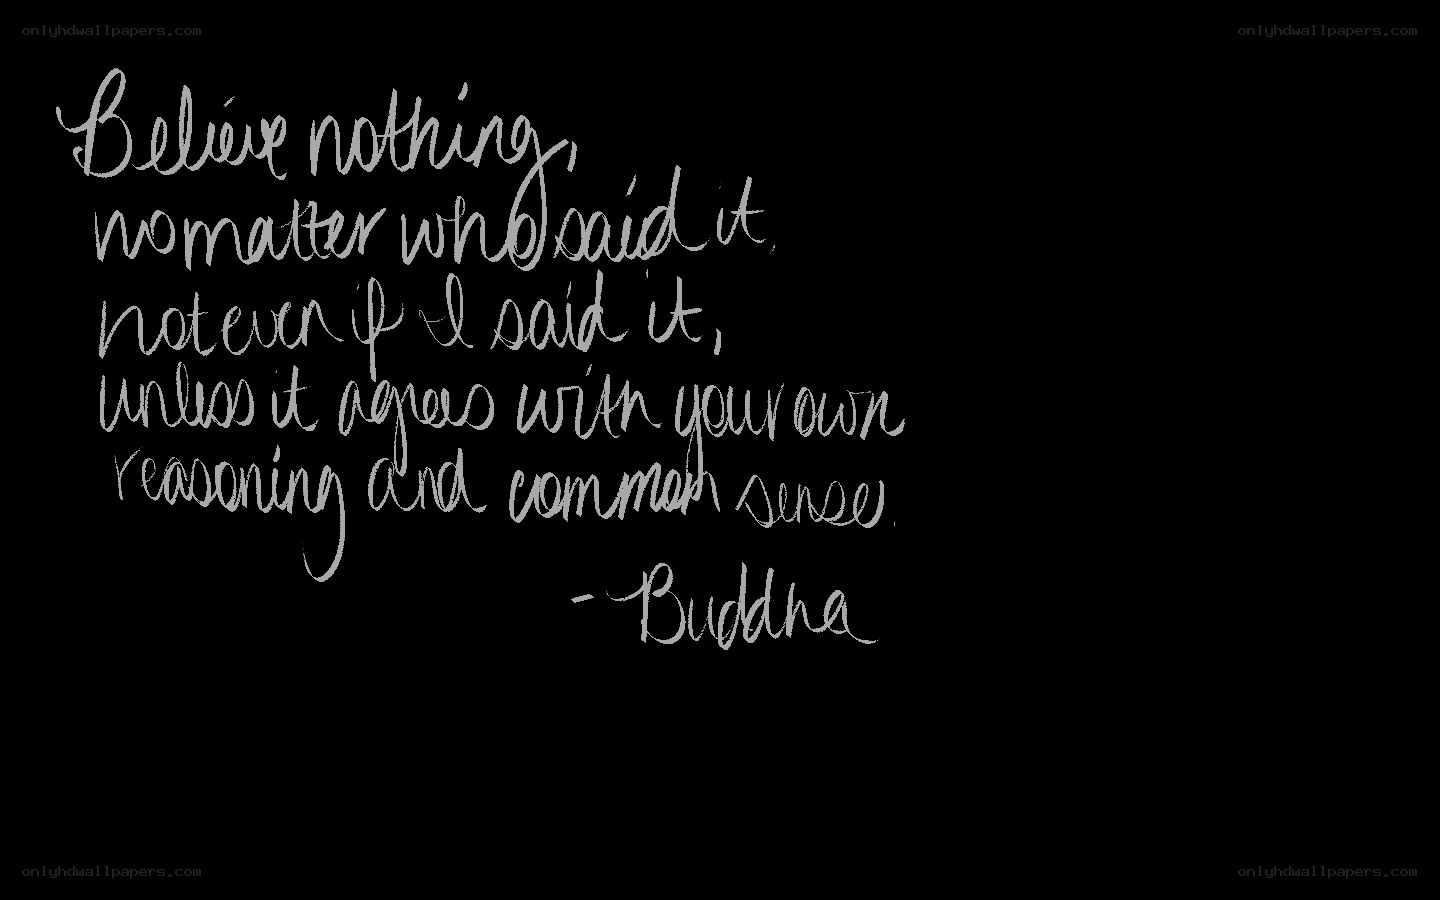 onlyhdwallpapers.com onlyhdwallpapers.com
Believe nothing,
no matter who said it,
not even if I said it,
unless it agrees with your own
reasoning and common sense.
- Buddha
onlyhdwallpapers.com onlyhdwallpapers.com